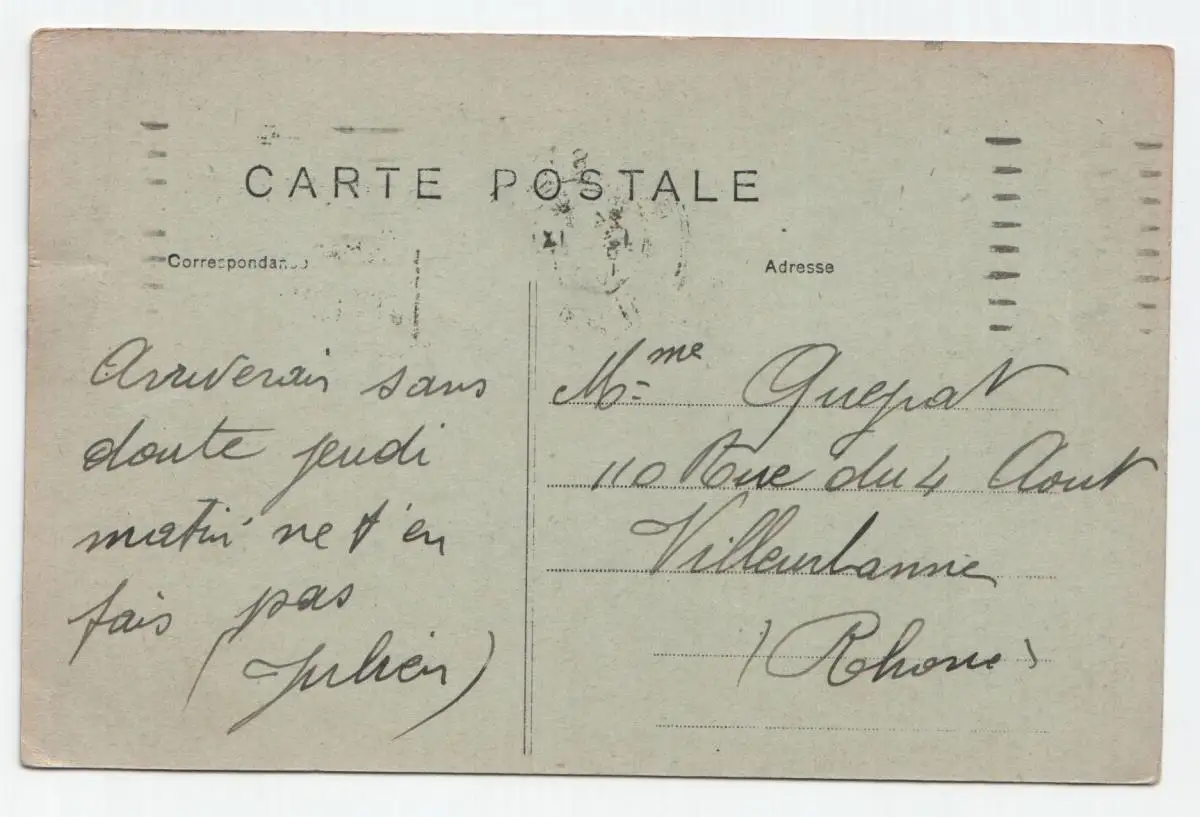 CARTE POSTALE
Correspondance
Adresse
Arriverais sans
doute jeudi
matin ne t'en
fais pas
(Julien)
Mme Guepat
110 Rue du 4 Aout
Villeurbanne
(Rhone)